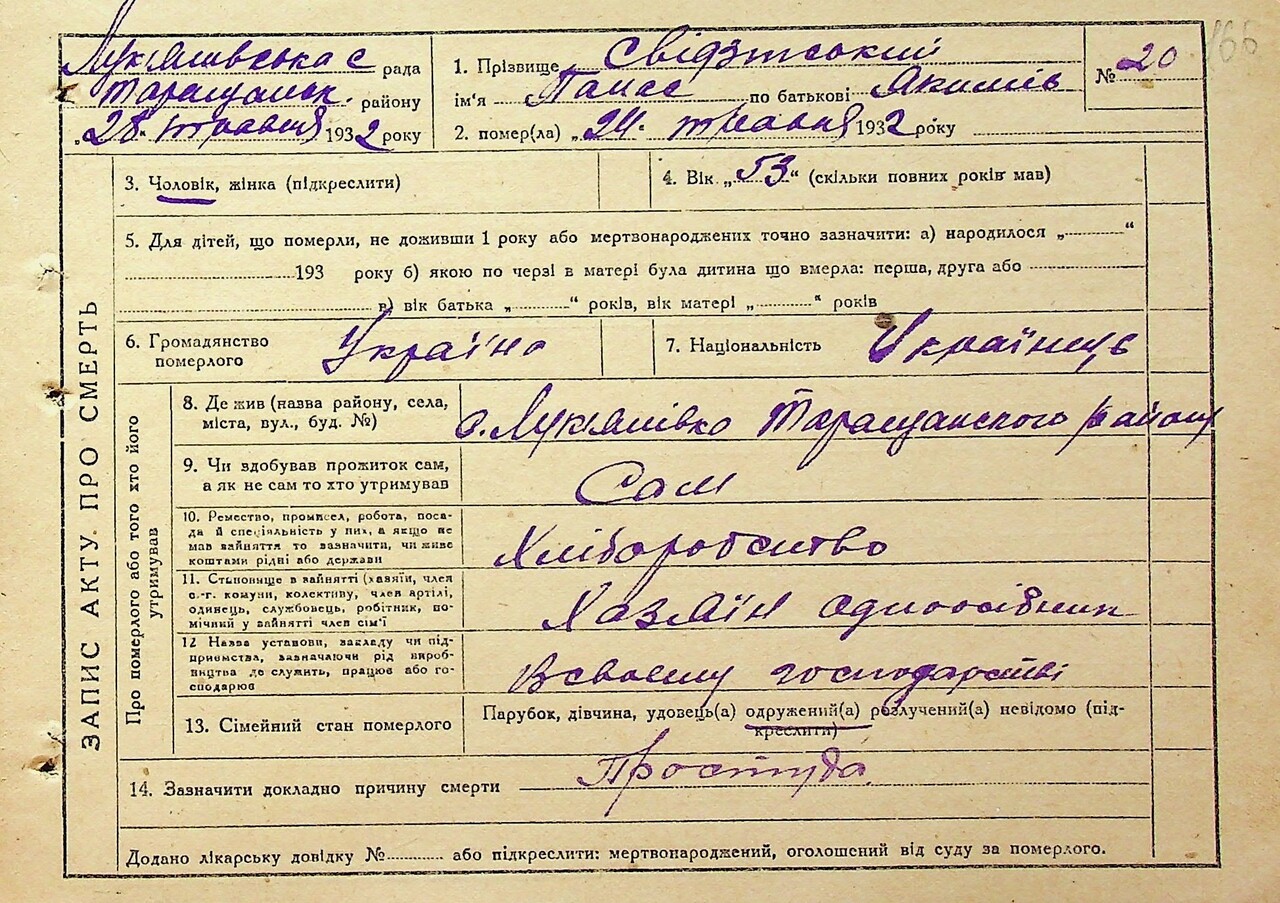 166
Лукяшівська с рада
Таращанськ. району
„28. травня 1932 року
1. Прізвище Свідзінський
ім'я Панас по батькові Якимів
№ 20
2. помер(ла) „24. травня 1932 року
3. Чоловік, жінка (підкреслити)
4. Вік „53“ (скільки повних років мав)
5. Для дітей, що померли, не доживши 1 року або мертвонароджених точно зазначити: а) народилося „ “
193 року б) якою по черзі в матері була дитина що вмерла: перша, друга або
в) вік батька „ “ років, вік матері „ “ років
6. Громадянство
померлого
Україна
7. Національність Українець
ЗАПИС АКТУ ПРО СМЕРТЬ
Про померлого або того хто його
утримував
8. Де жив (назва району, села,
міста, вул., буд. №)
с. Лукяшівка Таращанского району
9. Чи здобував прожиток сам,
а як не сам то хто утримував
Сам
10. Ремество, промисел, робота, поса-
да й спеціяльність у них, а якщо не
мав зайняття то зазначити, чи живе
коштами рідні або держави
Хліборобство
11. Становище в зайнятті (хазяїн, член
с.-г. комуни, колективу, член артілі,
одинець, службовець, робітник, по-
мічний у зайнятті член сім'ї
Хазяїн одноосібник
12 Назва установи, закладу чи під-
приємства, зазначаючи рід вироб-
ництва де служить, працює або го-
сподарює
В своему господарстві
13. Сімейний стан померлого
Парубок, дівчина, удовець(а) одружений(а) розлучений(а) невідомо (під-
креслити)
14. Зазначити докладно причину смерти Простуда
Додано лікарську довідку № або підкреслити: мертвонароджений, оголошений від суду за померлого.